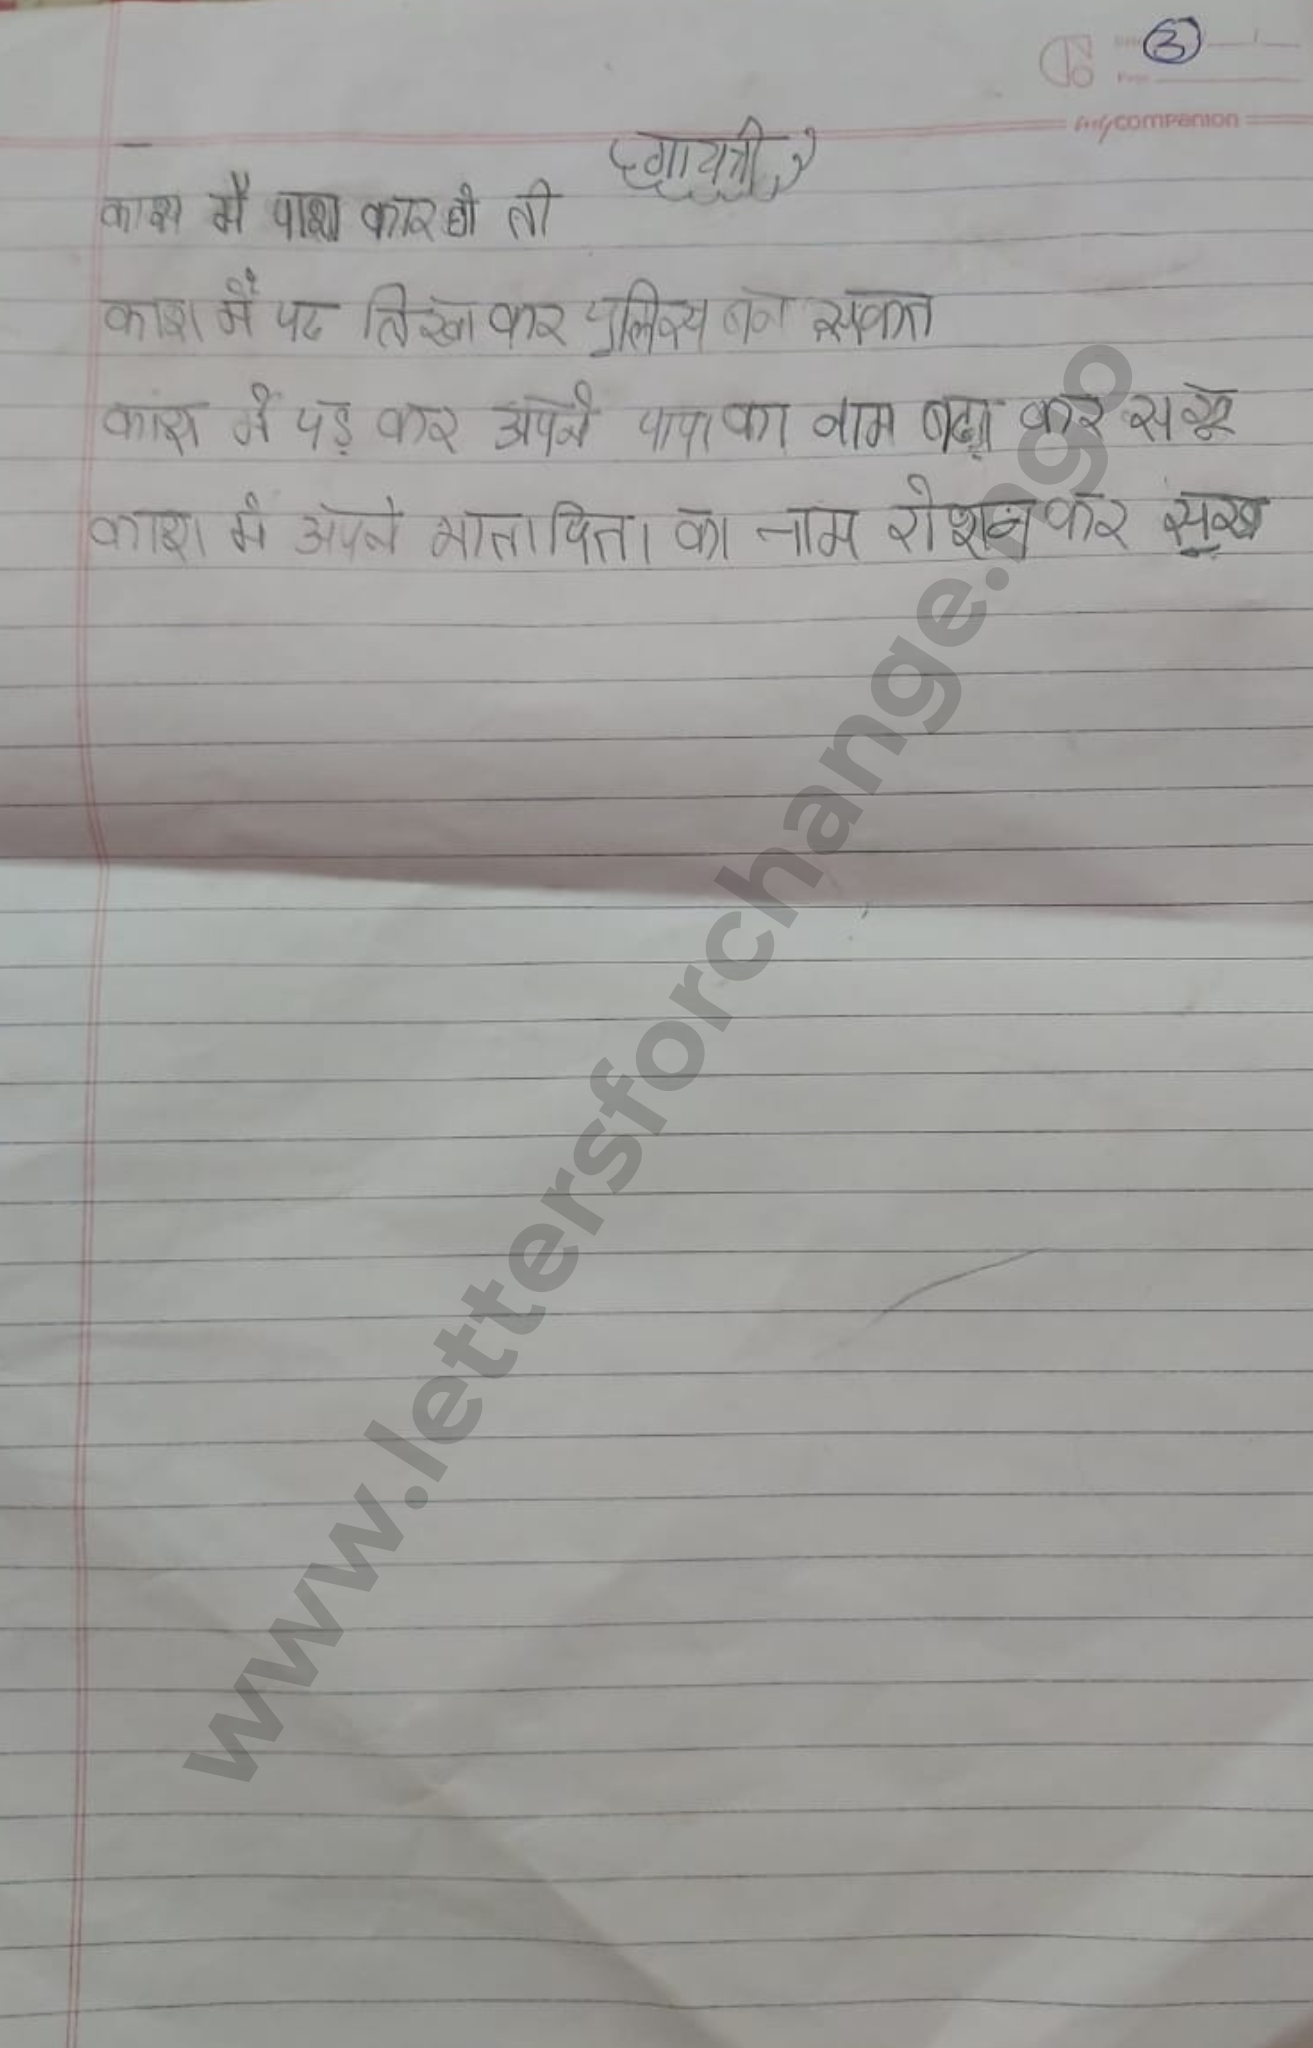 3
my companion
गायत्री
काश मै पाश कार हो ती
काश मैं पढ लिखा कर पुलिस्य बन सकत
काश में पड़ कर अपने पापा का नाम बढा कर सकू
काश में अपने माता पिता का नाम रोशन कर सख
www.lettersforchange.ngo